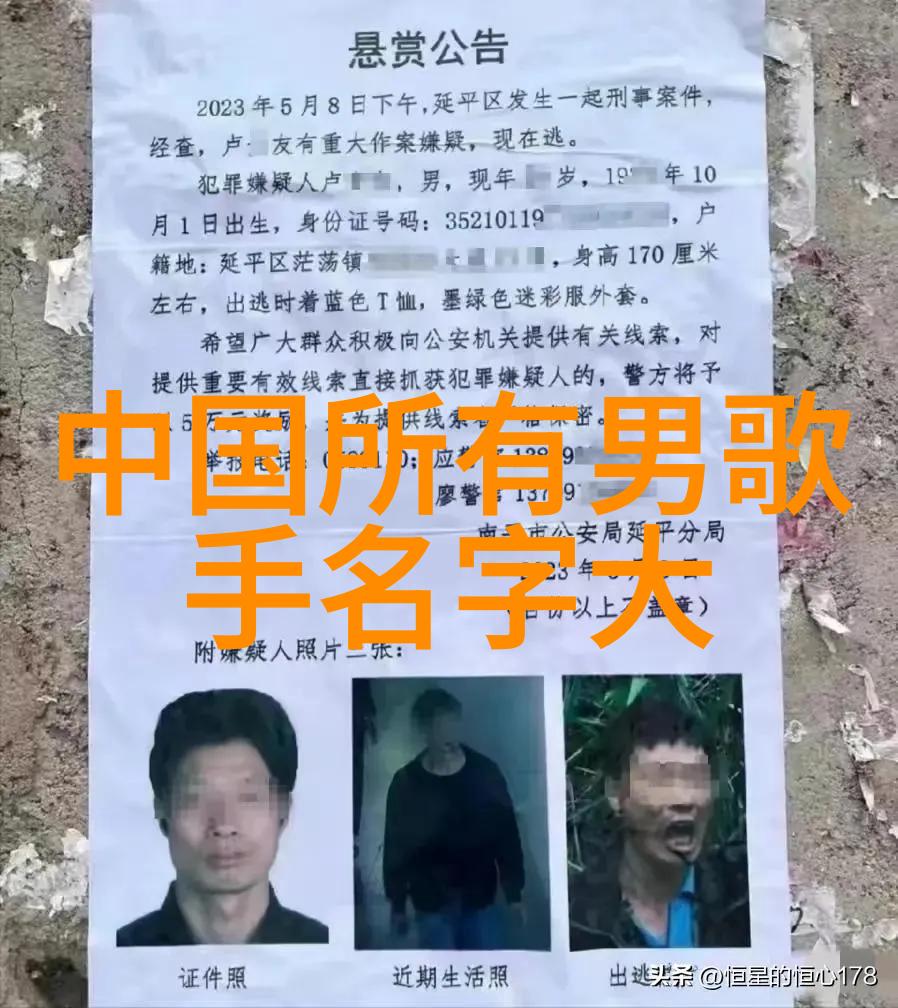 悬赏公告
2023年5月8日下午，延平区发生一起刑事案件，
经查，卢 友有重大作案嫌疑，现在逃。
犯罪嫌疑人卢 ，男，现年 岁，19 年10
月1日出生，身份证号码：35210119 ，户
籍地：延平区茫荡镇 ，身高170厘米
左右，出逃时着蓝色T恤，墨绿色迷彩服外套。
希望广大群众积极向公安机关提供有关线索，对
提供重要有效线索直接抓获犯罪嫌疑人的，警方将予
中国所有男歌
手名字大
廖警官 137
市公安局延平分局
附嫌疑人照片 张：
证件照
近期生活照
出逃
头条 @恒星的恒心178